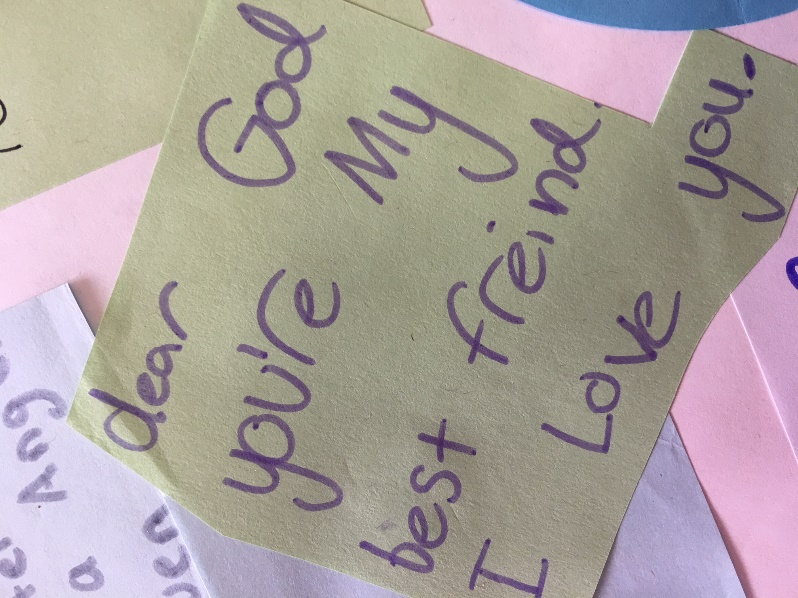 dear God
you're My
best freind.
I Love you.
Ang
a